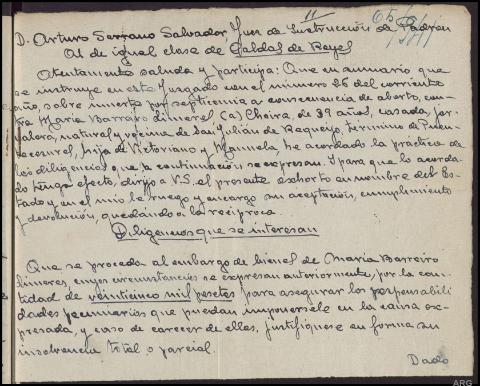 11
65/941
D. Arturo Serrano Salvador Juez de Instrucción de Padron
Al de igual clase de Caldas de Reyes
Atentamente saluda y participa: Que en sumario que
se instruye en este Juzgado con el número 26 del corriente
año, sobre muerte por septicemia a consecuencia de aborto, con-
tra Maria Barreiro Limeres (a) Choira, de 39 años, casada, jor-
nalera, natural y vecina de San Julián de Requeijo, término de Puen-
tecesures, hija de Victoriano y Manuela, he acordado la practica de
las diligencias que a continuación se expresan. Y para que lo acorda-
do tenga efecto, dirijo a V.S. el presente exhorto en nombre del Es-
tado y en el mio le ruego y encargo su aceptación, cumplimiento
y devolución, quedándo a la reciproca.
Diligencias que se interesan
Que se proceda al embargo de bienes de Maria Barreiro
Limeres, cuyas circunstancias se expresan anteriormente, por la can-
tidad de veinticinco mil pesetas para asegurar las responsabili-
dades pecuniarias que puedan imponersele en la causa ex-
presada, y caso de carecer de ellos, justifiquese en forma su
insolvencia total o parcial.
Dado
ARG